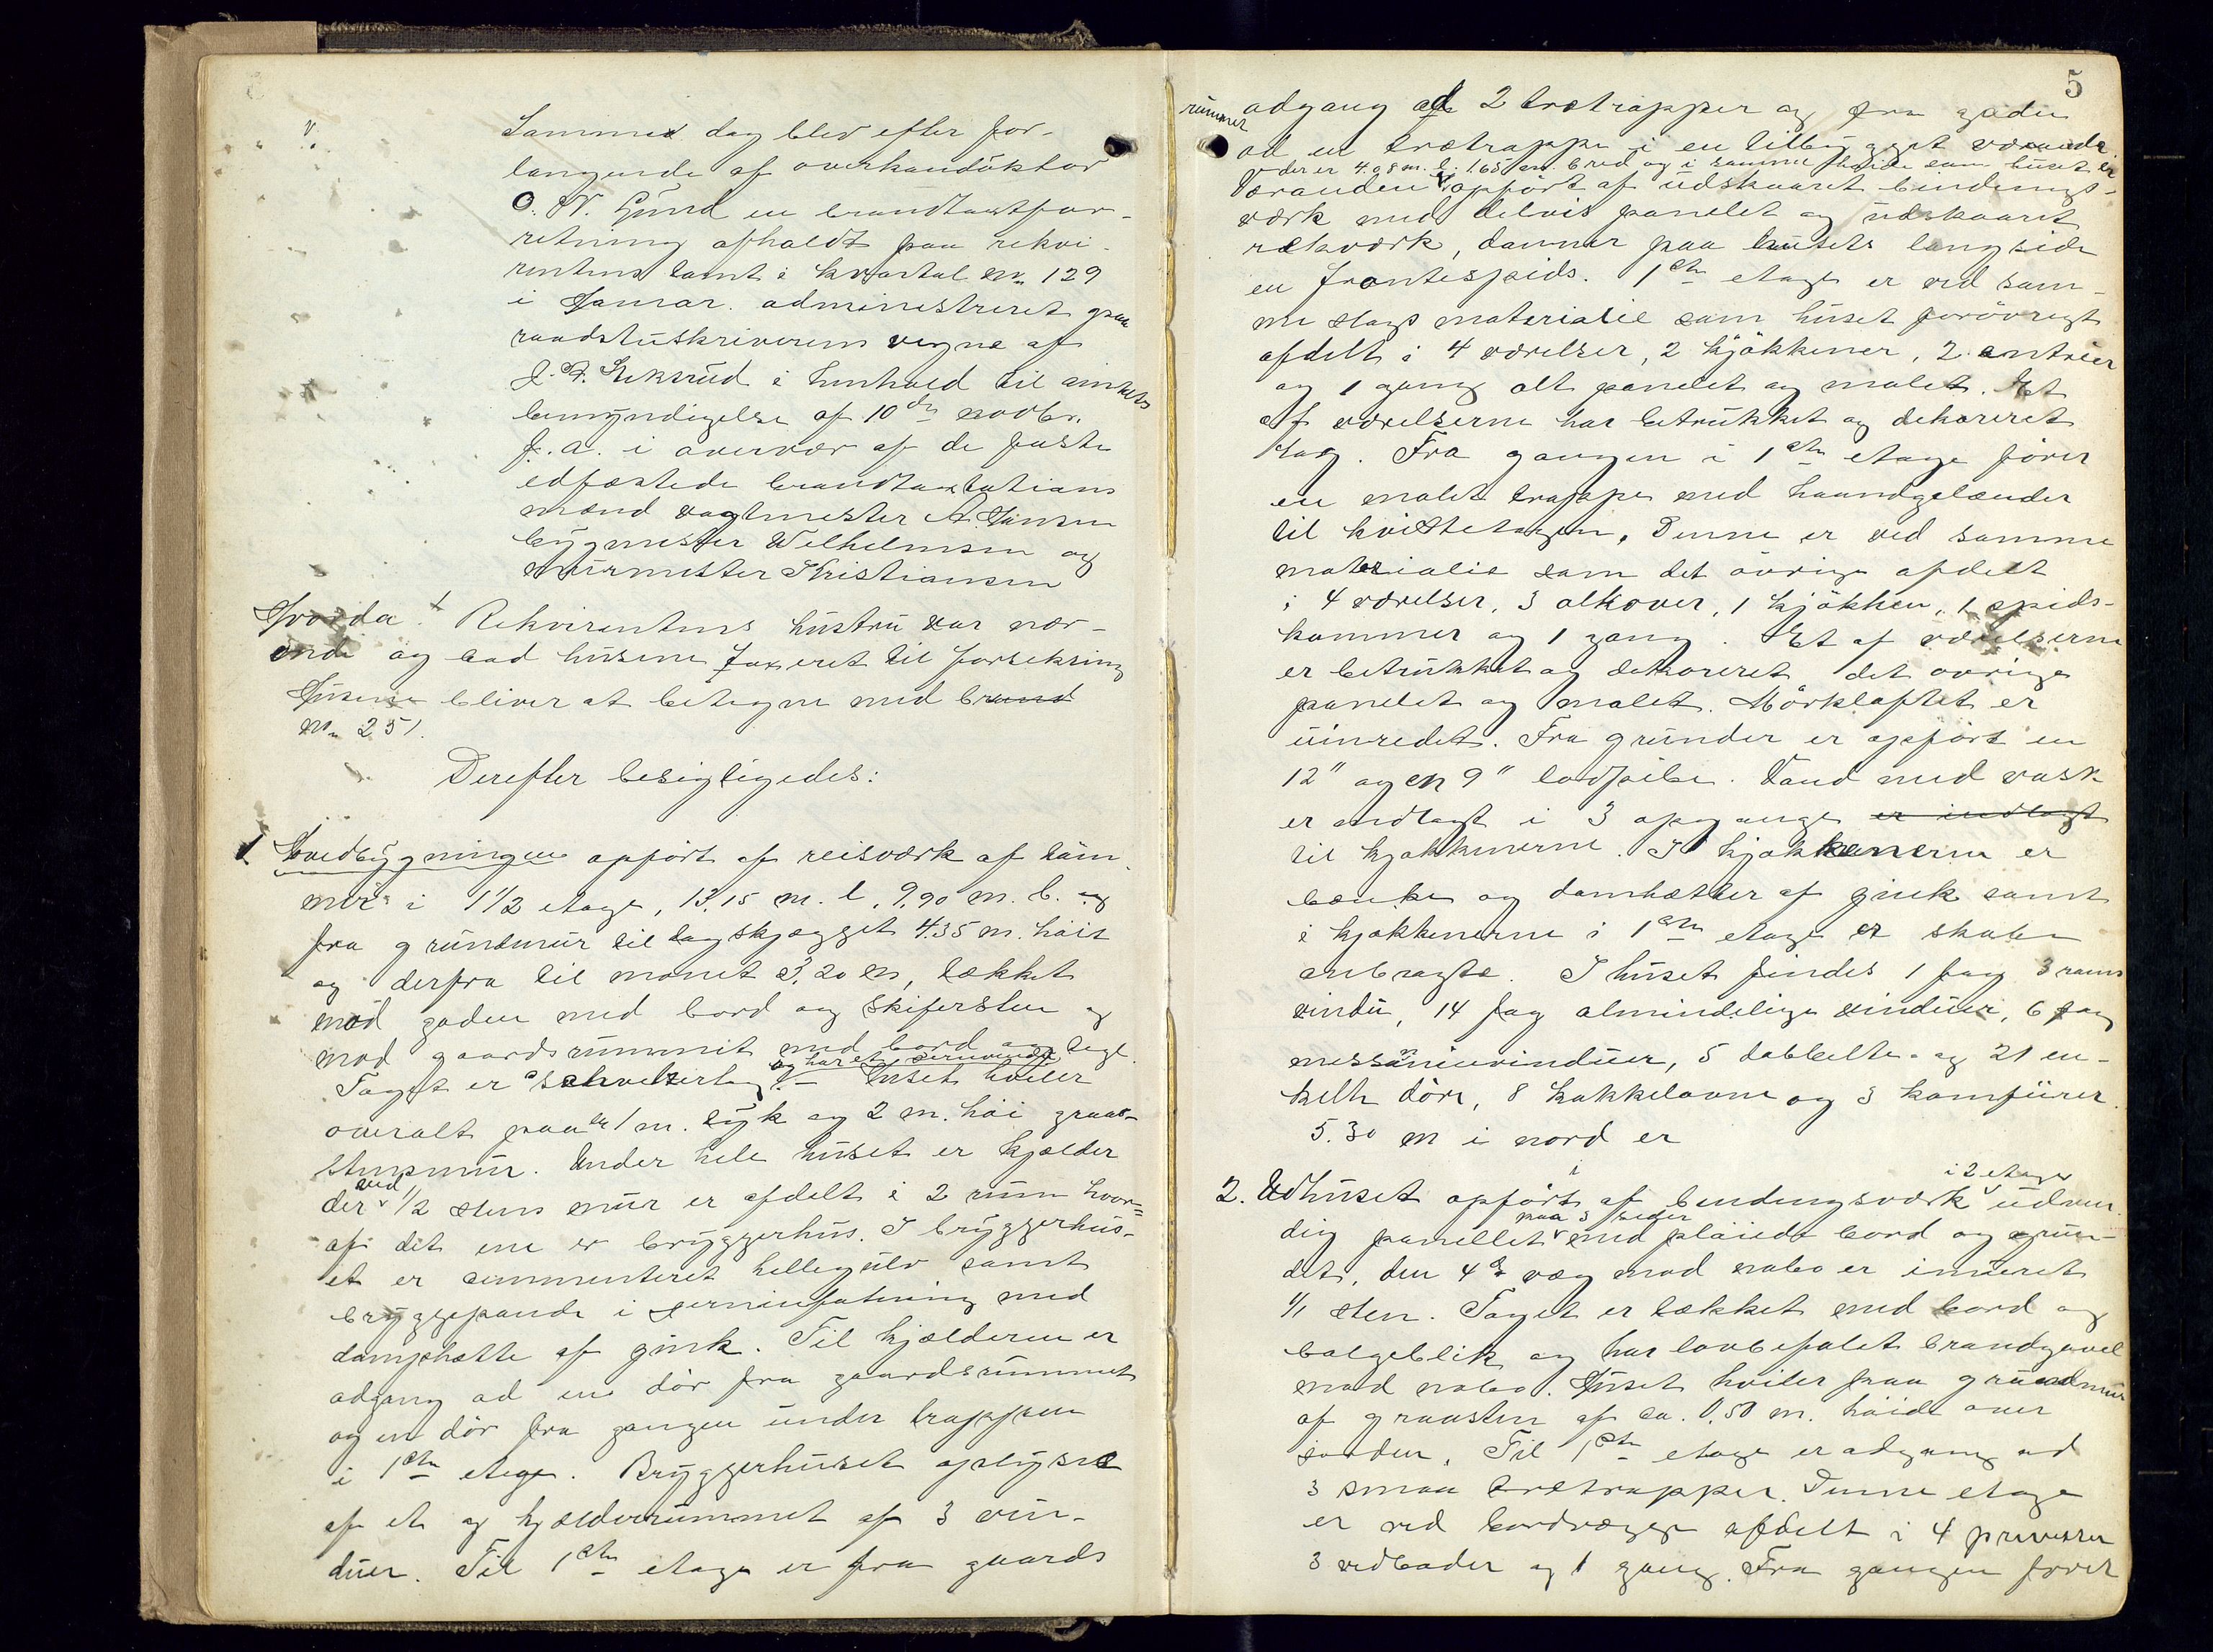 Samme dag blev efter for-
langende af overkonduktør
O. W. Lund en brandtaxtfor-
retning afholdt paa rekvi-
rentens tomt i kvartal No 129
i Hamar. administreret paa
raadstuskriverens vegne af
i henhold til amtets
bemyndigelse af 10de novbr.
f.a. i overvær af de faste
edfæstede brandtaxtations
mænd vagtmester A. Hansen
bygmester Wilhelmsen og
murmester Kristiansen
Hvorda! Rekvirentens hustru var nær-
ende og bad husene taxeret til forsikring
Husene bliver at betegne med brand
No 251.
Derefter besigtigedes:
1. Hovedbygningen opført af reisværk af tøm-
mer i 1 1/2 etage, 13,15 m. l. 9,90 m. b. og
fra grundmur til tagskjægget 4.35 m. høit
og derfra til mønet 3,20 m, tækket
mod gaden med bord og skifersten og
mod gaardsrummet med bord og tegl.
og har et
Taget er schveitzertag. Huset hviler
overalt paa en 1 m. tyk og 2 m. høi graa-
stensmur. Under hele huset er kjælder
ved
der 1/2 stens mur er afdelt i 2 rum hvor-
af det ene er bryggerhus. I bryggerhus-
et er cementeret hellegulv samt
bryggepande i jernindfatning med
damphætte af zink. Til kjælderen er
adgang ad en dør fra gaardsrummet
og en dør fra gangen under trappen
i 1ste etage. Bryggerhuset oplyses
af et og kjælderrummet af 3 vin-
duer. Til 1ste etage er fra gaards
5
rummet adgang ad 2 trætrapper og fra gaden
ad en trætrappe i en tilbygget veranda
der er 4.08 m. l. 1.65 m. bred og i samme høide som huset er
Verandaen opført af udskaaret bindings-
værk med delvis panelet og udskaaret
rækværk, danner paa husets langside
en frontespids. 1ste etage er ved sam-
me slags materialie som huset forøvrigt
afdelt i 4 værelser, 2 kjøkkener, 2 entréer
og 1 gang alt panelet og malet. Et
af værelserne har betrukket og dekoreret
tag. Fra gangen i 1ste etage fører
en malet trappe med haandgelænder
til kvistetagen. Denne er ved samme
materialie som det øvrige afdelt
i 4 værelser, 3 alkover, 1 kjøkken, 1 spids-
kammer og 1 gang. Et af værelserne
er betrukket og dekoreret det øvrige
panelet og malet. Mørkloftet er
uinredet. Fra grunden er opført en
12" og en 9" lodpibe. Vand med vask
er indlagt i 3 opgange er indlagt
til kjøkkenerne. I kjøkkenerne er
bænke og damhætter af zink samt
i kjøkkenerne i 1ste etage er skabe
anbragte. I huset findes 1 fag 3 rams
vindu, 14 fag almindelige vinduer, 6 fag
messaninvinduer, 5 dobbelte og 21 en-
kelte døre, 8 kakkelovne og 3 komfürer.
5.30 m i nord er
i 2 etager
2. Udhuset opført af bindingsværk udven-
paa 3 sider
dig panellet med pløiede bord og grün-
det, den 4de væg mod nabo er inmuret
1/1 sten. Taget er tækket med bord og
bølgeblik og har lovbefalet brandgavel
mod nabo. Huset hviler paa grundmur
af graasten af ca. 0,50 m. høide over
jorden. Til 1ste etage er adgang ad
3 smaa trætrapper. Denne etage
er ved bordvægge afdelt i 4 priveter
3 vedboder og 1 gang. Fra gangen fører